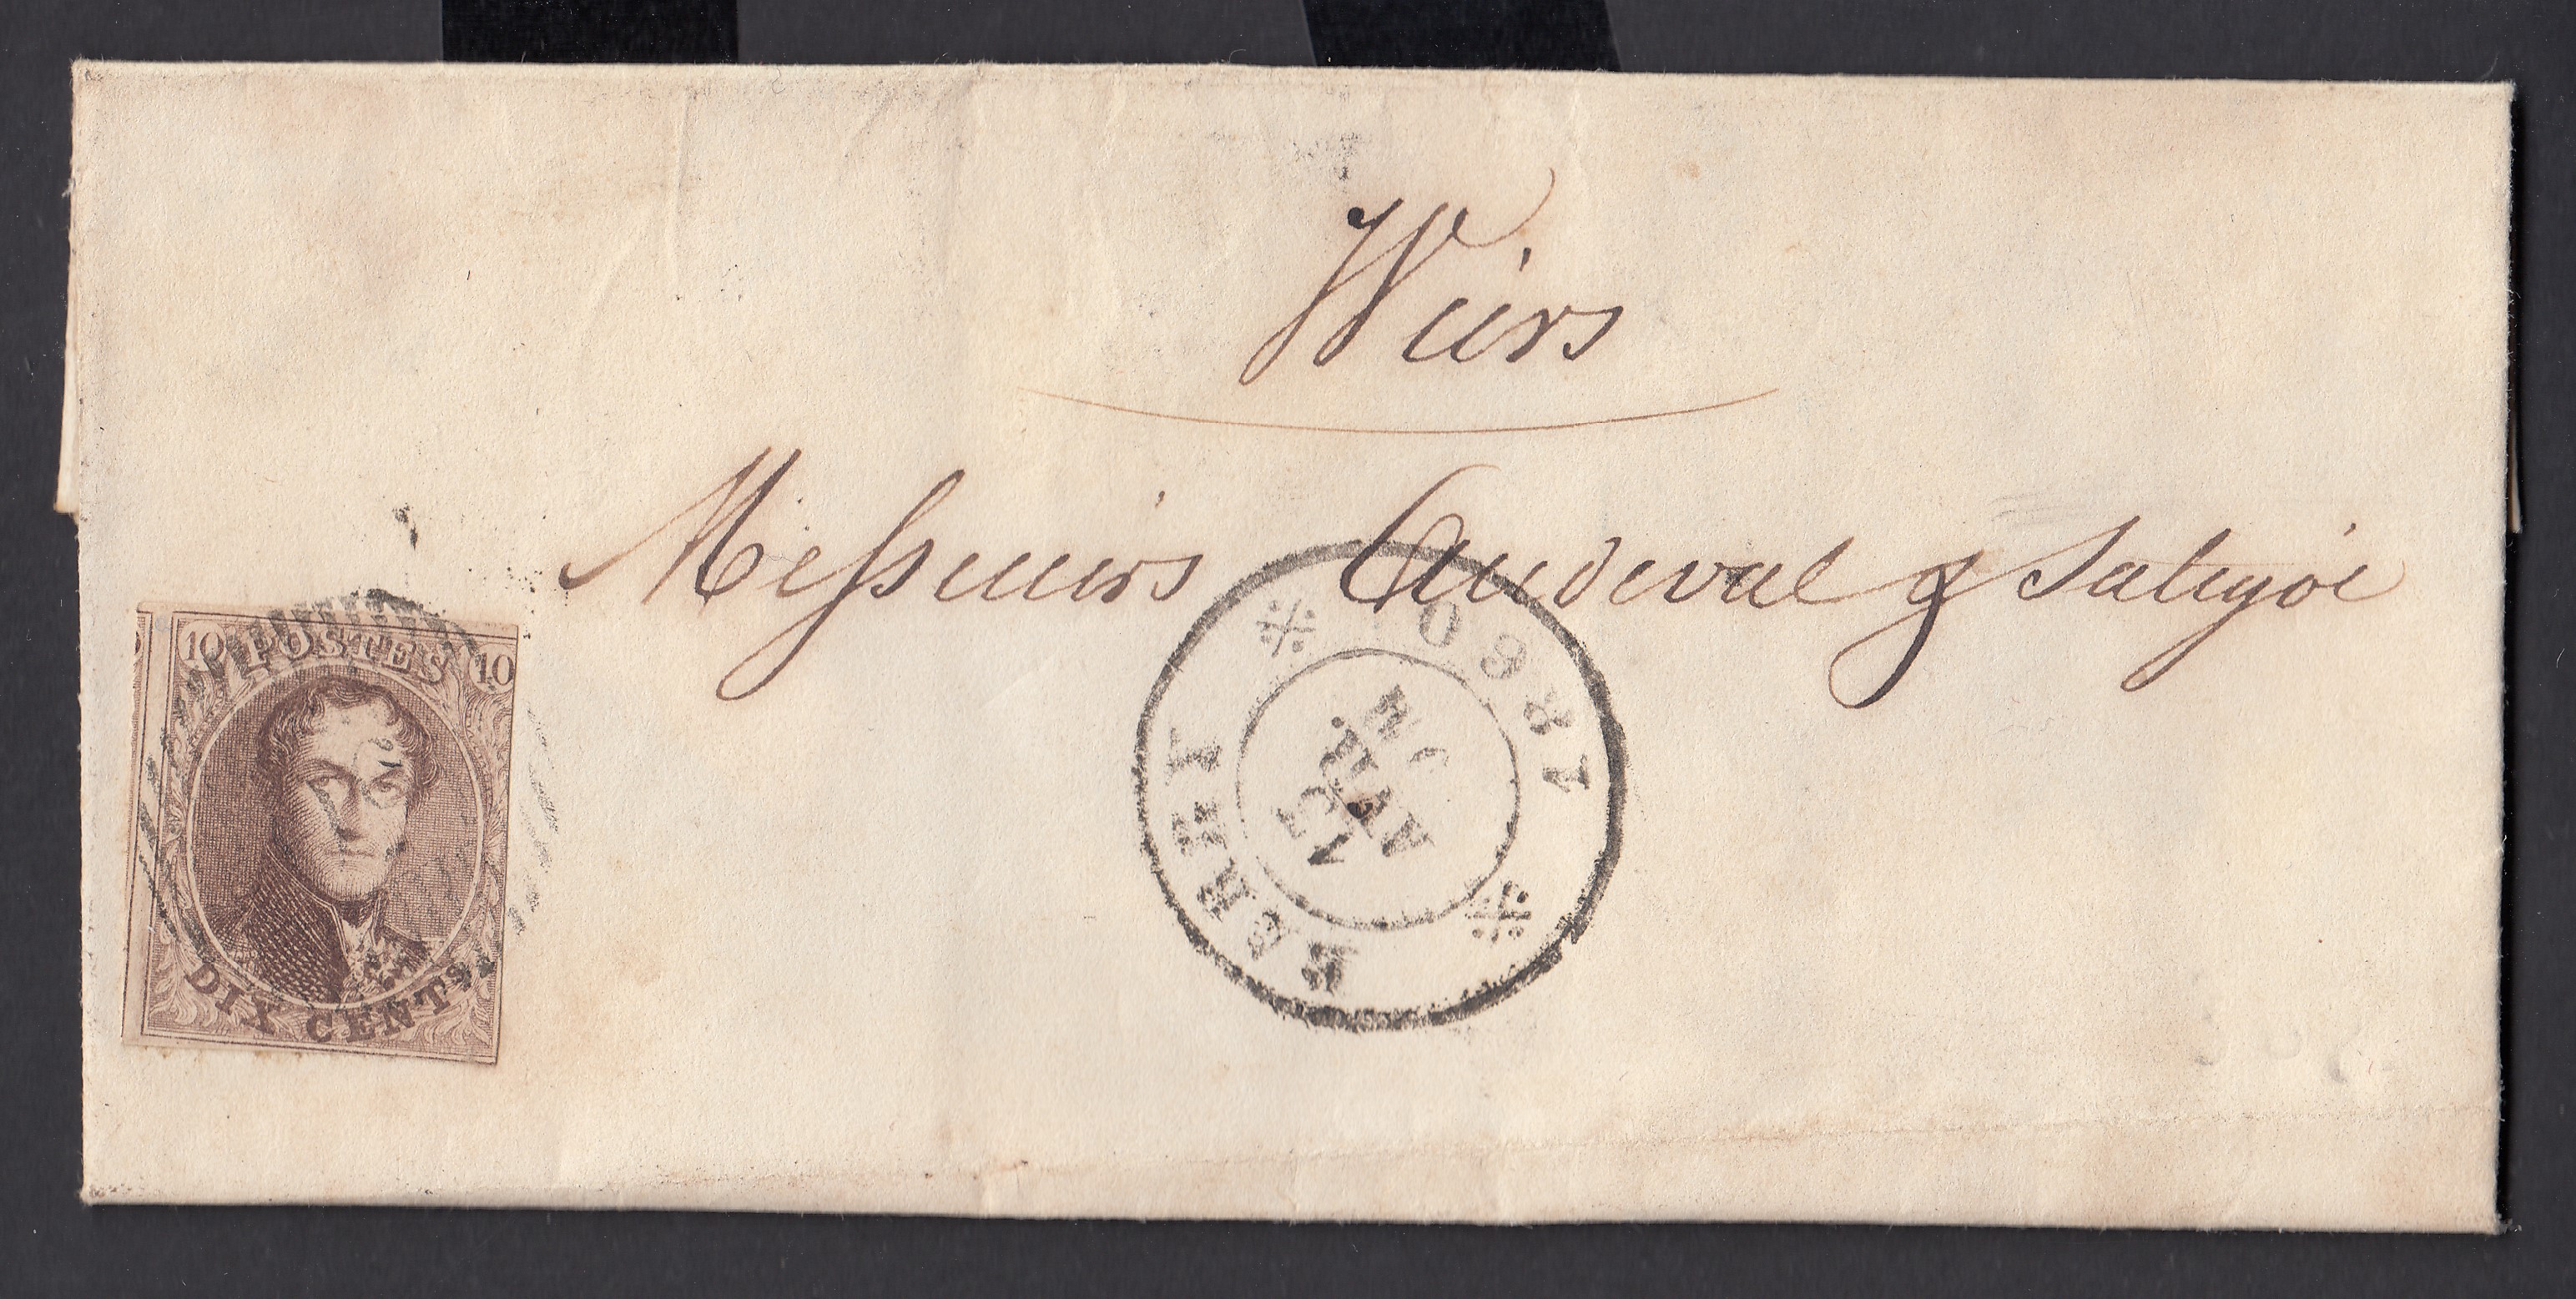 Wiers
Messieurs Caudeval & Salvgoi
10 POSTES 10
DIX CENTS
1860
AVR.